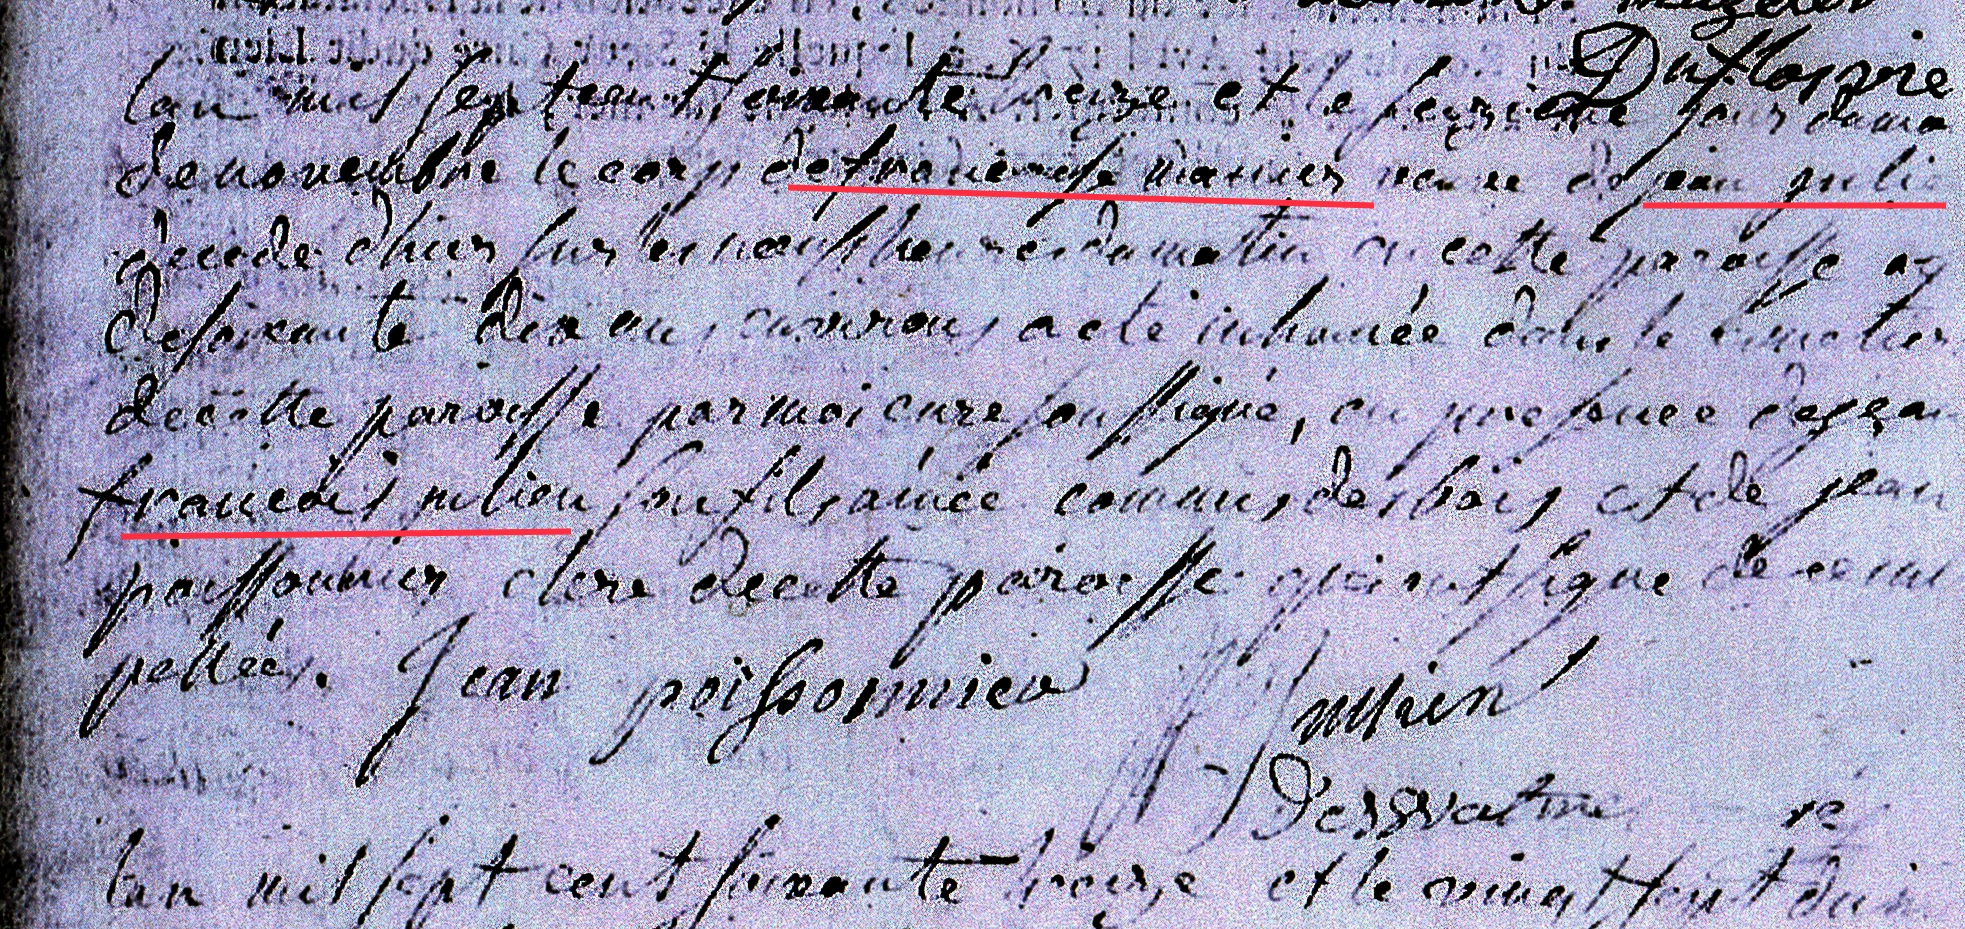 Duflosme
lan mil sept cent soixante treize et le seizieme jour du moi
de novembre le corp de francoise manier veuve de jean julie
decede dhier sur les neuf heure du matin en cette paroisse ag
de soixante dix ans environs a eté inhumée dans le cimetier
de cette paroisse par moi cure soussigné, en presence de
francois julien son fils ainée commis des bois et de jean
poissonnier clerc de cette paroisse qui ont signe de ce inter
pellés. Jean poissonnier julien
re
lan mil sept cent soixante treize et le vingt sept du